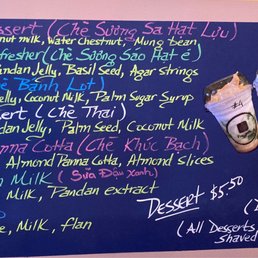 Dessert (Chè Sương Sa Hạt Lựu)
nut milk, Water Chestnut, Mung bean
fresher (Chè Sương Sáo Hạt é)
andan Jelly, Basil Seed, Agar strings
è Bánh Lọt
elly, Coconut Milk, Palm Sugar Syrup
ert (Chè Thai)
dan Jelly, Palm Seed, Coconut Milk
anna Cotta (Chè Khúc Bạch)
Almond Panna Cotta, Almond slices
n Milk (Sữa Đậu Xanh)
Milk, Pandan extract
e, Milk, flan
Dessert $5.50
(All Desserts
shaved